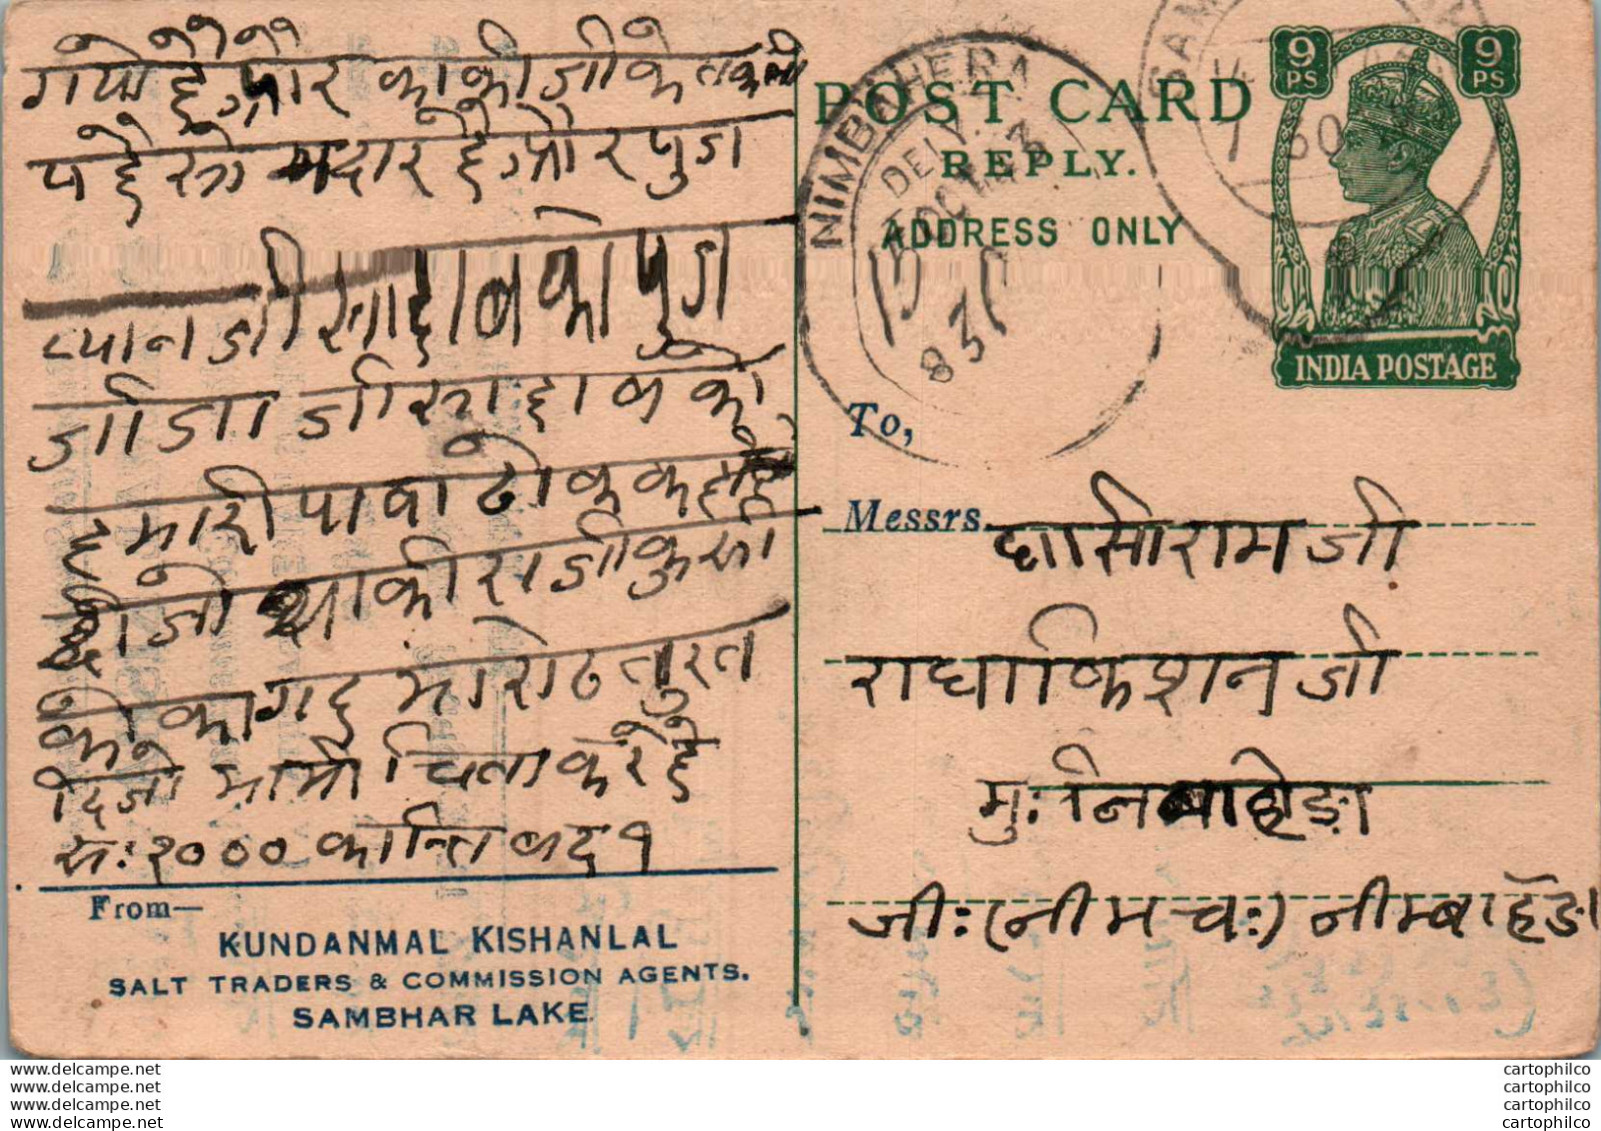 गयो है, और काकीजी के तकली
प हे सो मदार हे, और पुज
ध्यानजी साहाब को पुज
जीजाजी साहाब को
हमारी पावा ढोक कहे
दीजो थाकी राजी कुसी
को कागद मारोठ तुरत
दिजो मामी चिता करे हे
रु: २००० कान्ति बद १
From—
KUNDANMAL KISHANLAL
SALT TRADERS & COMMISSION AGENTS.
SAMBHAR LAKE.
POST CARD
REPLY.
ADDRESS ONLY
9 PS
9 PS
INDIA POSTAGE
NIMBAHERA
DELY.
OCT 43
830
SAM
30
To,
Messrs. घासीरामजी
राधाकिशनजी
मु: निंबाहेड़ा
जी: (नीमच:) नीम्बाहेडा
www.delcampe.net
www.delcampe.net
www.delcampe.net
www.delcampe.net
cartophilco
cartophilco
cartophilco
cartophilco